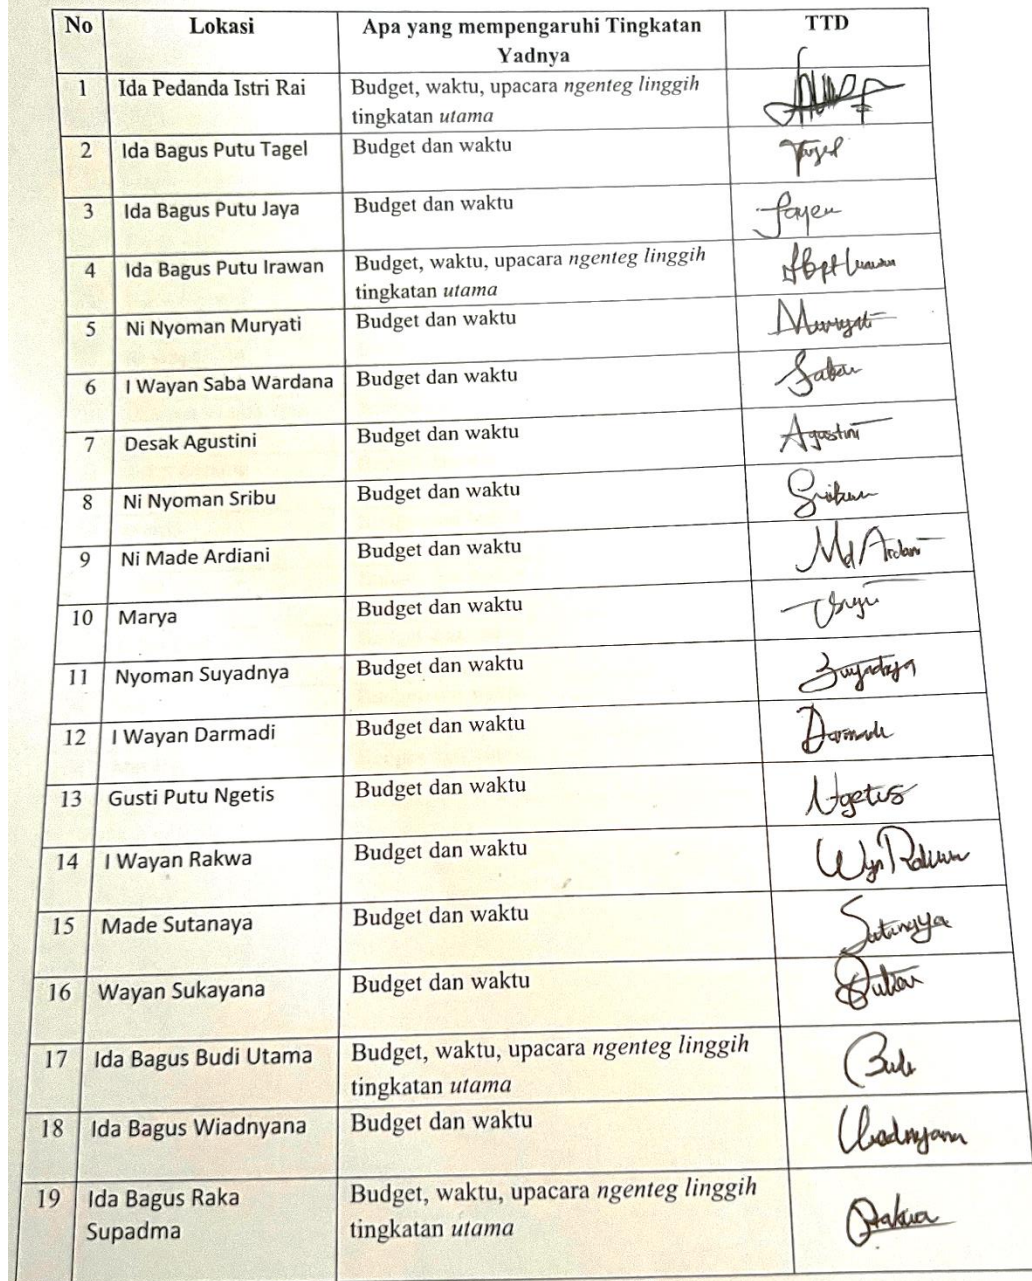 No Lokasi Apa yang mempengaruhi Tingkatan TTD
Yadnya
1 Ida Pedanda Istri Rai Budget, waktu, upacara ngenteg linggih
tingkatan utama
2 Ida Bagus Putu Tagel Budget dan waktu Tagel
3 Ida Bagus Putu Jaya Budget dan waktu
4 Ida Bagus Putu Irawan Budget, waktu, upacara ngenteg linggih
tingkatan utama
5 Ni Nyoman Muryati Budget dan waktu Muryati
6 I Wayan Saba Wardana Budget dan waktu
7 Desak Agustini Budget dan waktu Agustini
8 Ni Nyoman Sribu Budget dan waktu
9 Ni Made Ardiani Budget dan waktu
10 Marya Budget dan waktu
11 Nyoman Suyadnya Budget dan waktu Suyadnya
12 I Wayan Darmadi Budget dan waktu Darmadi
13 Gusti Putu Ngetis Budget dan waktu Ngetis
14 I Wayan Rakwa Budget dan waktu
15 Made Sutanaya Budget dan waktu Sutanaya
16 Wayan Sukayana Budget dan waktu
17 Ida Bagus Budi Utama Budget, waktu, upacara ngenteg linggih
tingkatan utama
18 Ida Bagus Wiadnyana Budget dan waktu Wiadnyana
19 Ida Bagus Raka Budget, waktu, upacara ngenteg linggih
Supadma tingkatan utama